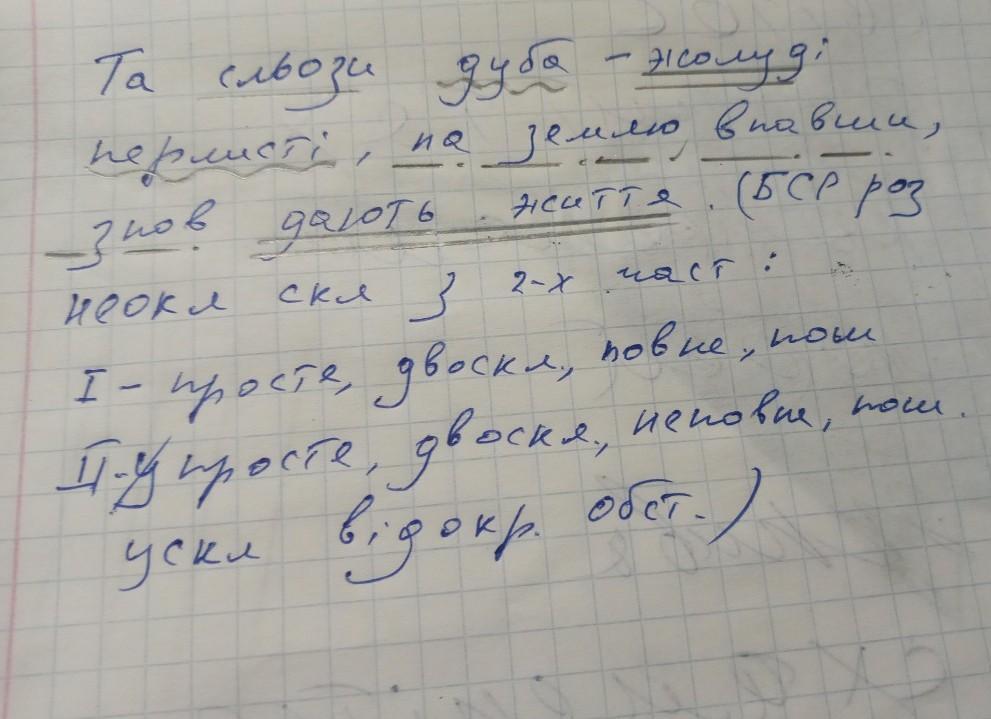 Та сльози дуба – жолуді
перлисті, на землю впавши,
знов дають життя. (БСР роз
неокл скл з 2-х част:
I – просте, двоскл., повне, пош
II – просте, двоскл., неповне, пош.
ускл відокр. обст.)